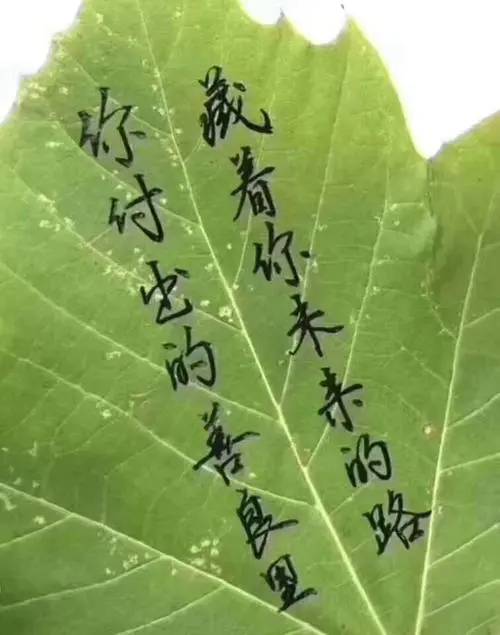 你付出的善良里
藏着你未来的路